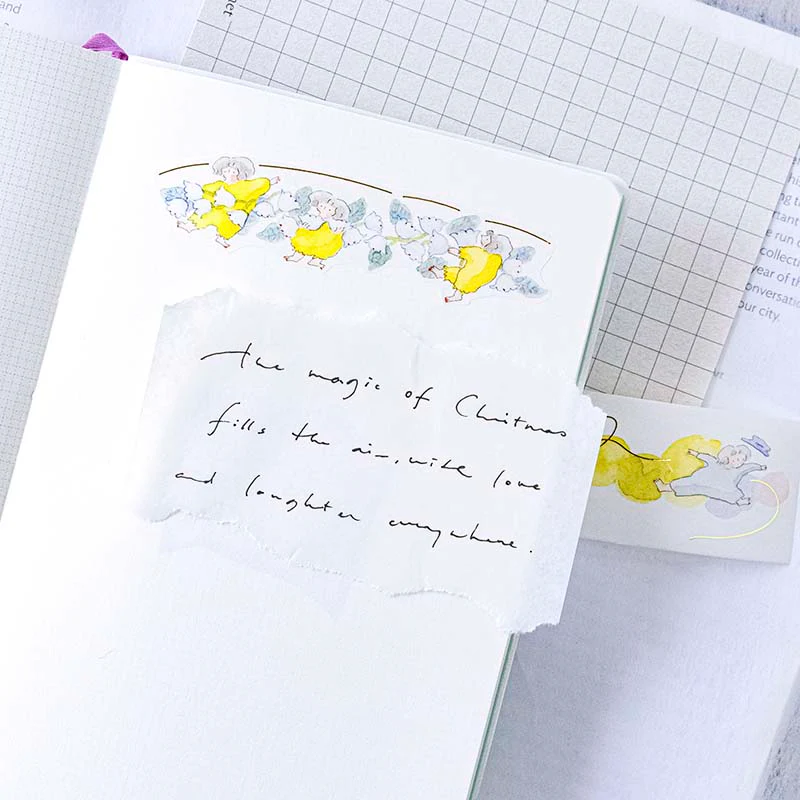 and
det
the magic of Chritmas
fills the air, with love
and laughter everywhere.
run
collecti
year of th
onversatio
our city.